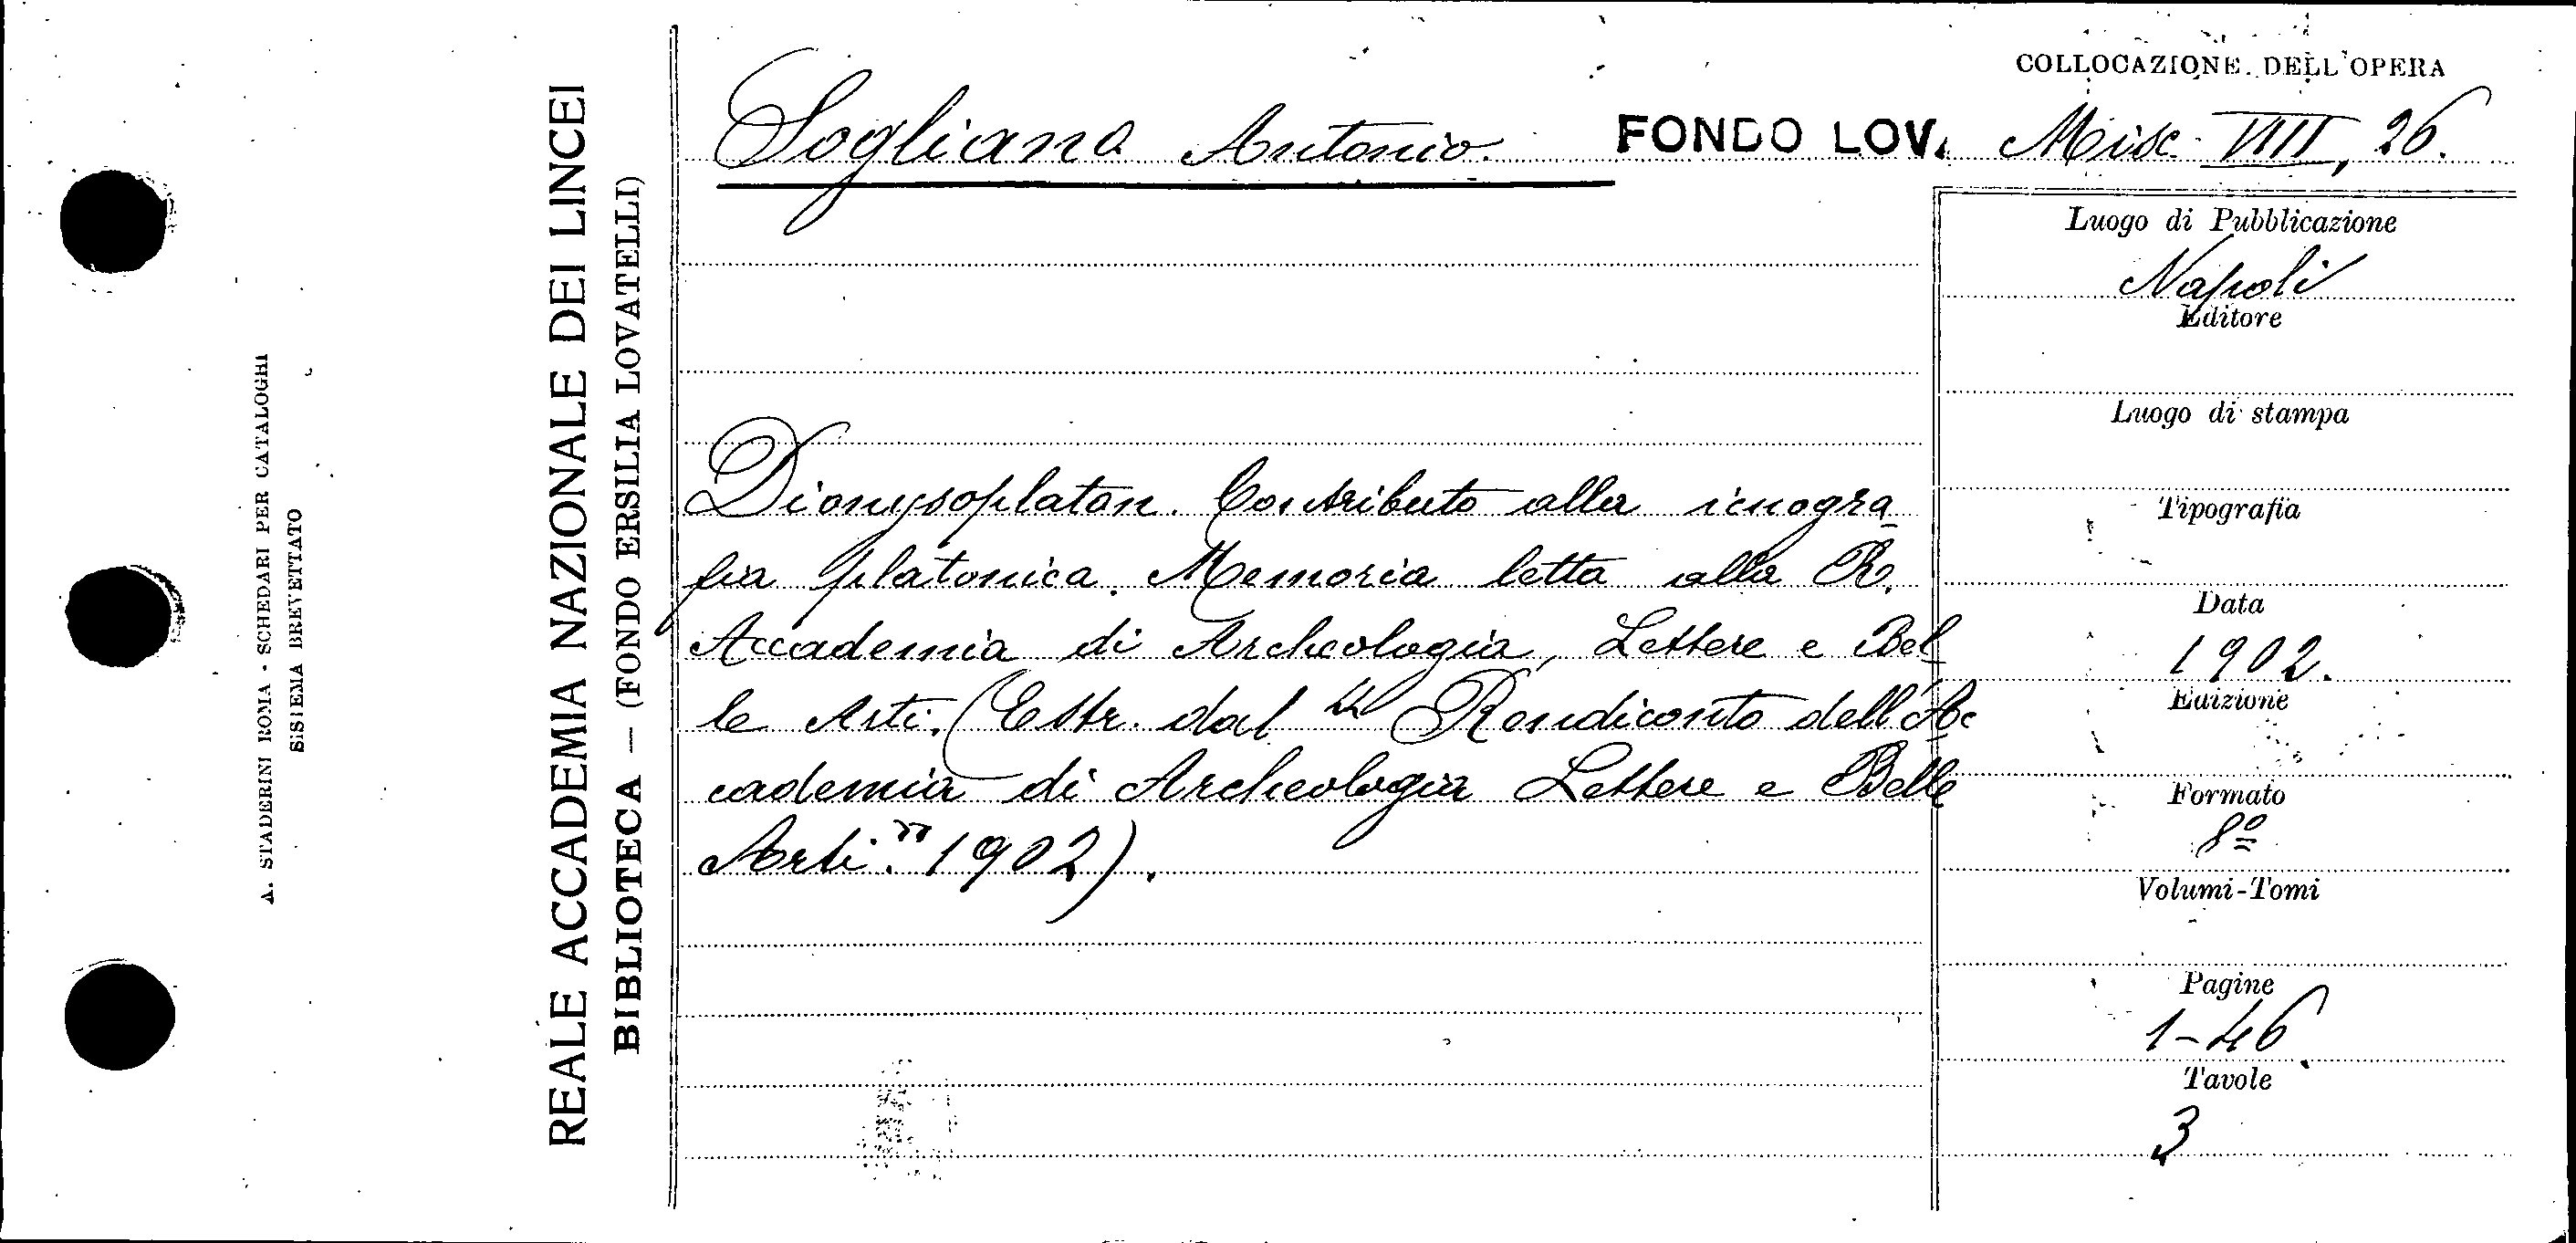 A. STADERINI ROMA - SCHEDARI PER CATALOGHI
SISTEMA BREVETTATO
REALE ACCADEMIA NAZIONALE DEI LINCEI
BIBLIOTECA — (FONDO ERSILIA LOVATELLI)
COLLOCAZIONE DELL'OPERA
Sogliano Antonio. FONDO LOV. Misc. VIII, 26.
Dionysoplaton. Contributo alla icnogra-
fia platonica. Memoria letta alla R.
Accademia di Archeologia, Lettere e Bel-
le Arti. (Estr. dal "Rendiconto dell'Ac-
cademia di Archeologia Lettere e Belle
Arti." 1902).
Luogo di Pubblicazione
Napoli
Editore
Luogo di stampa
Tipografia
Data
1902.
Edizione
Formato
8º
Volumi-Tomi
Pagine
1-46.
Tavole
3